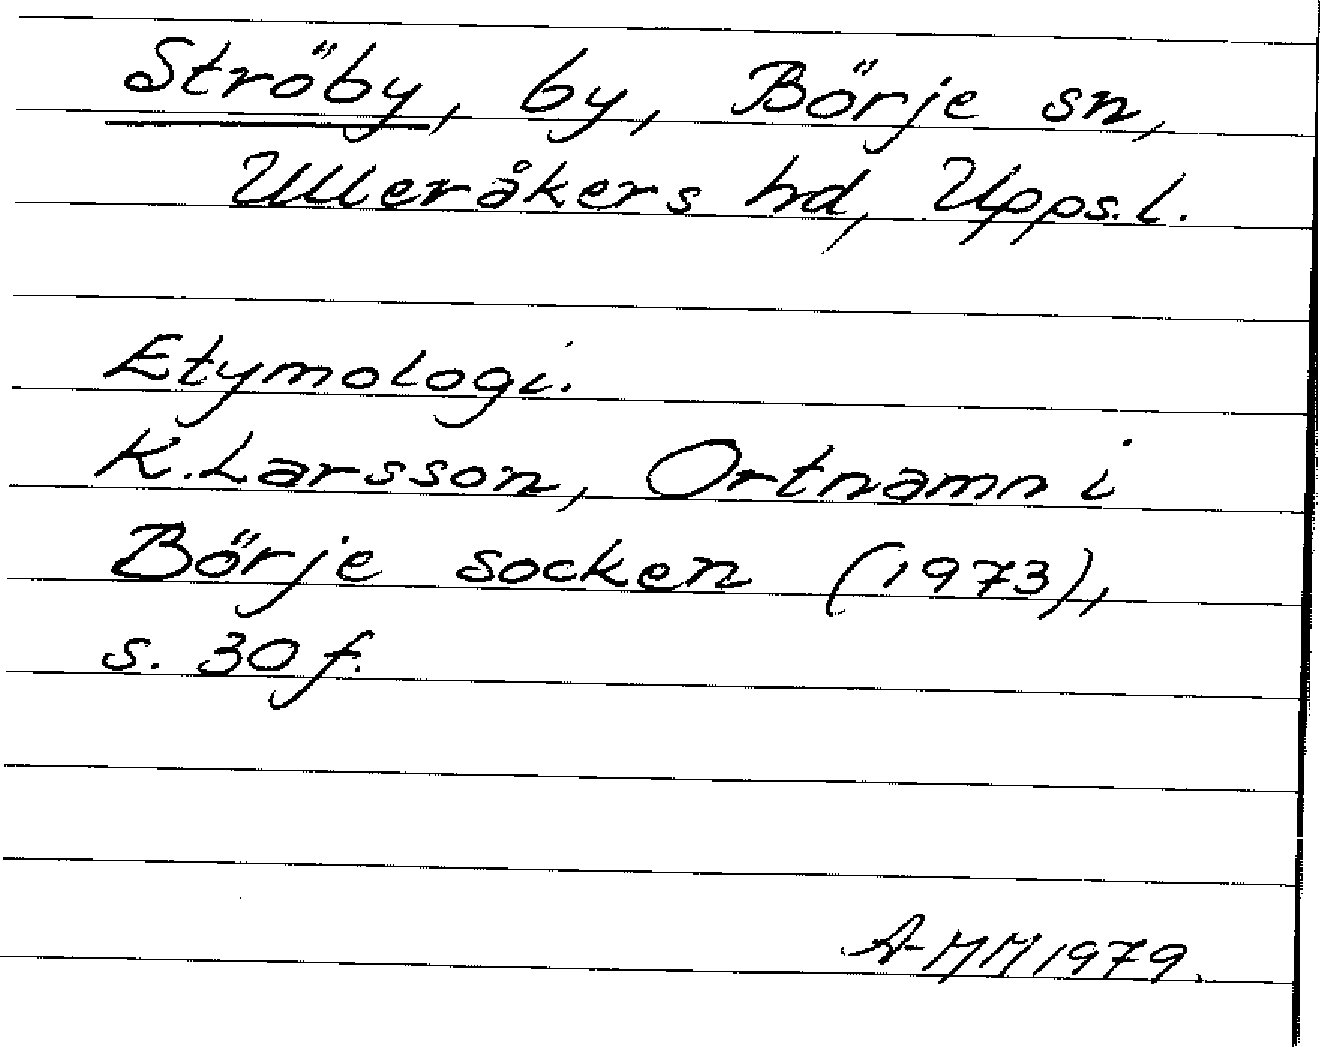 Ströby, by, Börje sn,
Ulleråkers hd, Upps.l.
Etymologi.
K. Larsson, Ortnamn i
Börje socken (1973),
s. 30 f.
A-MM 1979.